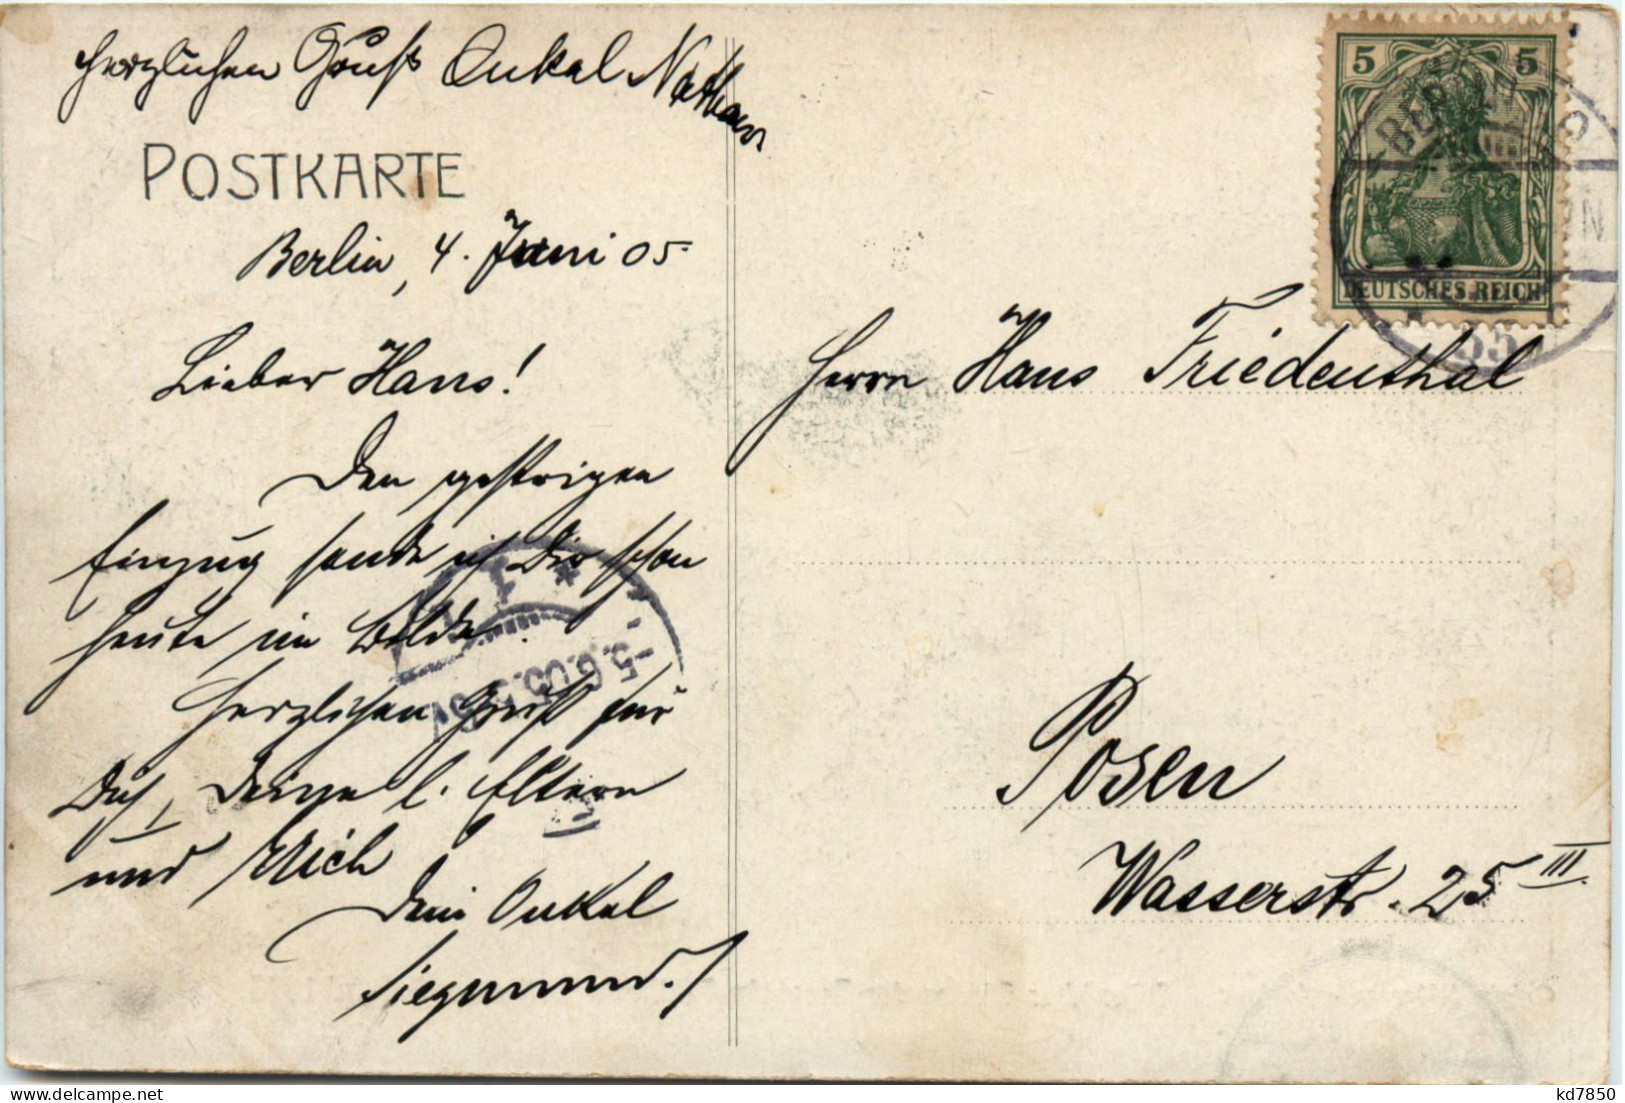 Herzlichen Gruß Onkel Nathan
POSTKARTE
Berlin, 4. Juni 05
Lieber Hans!
Den gestrigen
Einzug sende ich Dir schon
heute im Bilde.
Herzlichen Gruß für
Dich, Deine l. Eltern
und Erich
Dein Onkel
Siegmund.
5 5
DEUTSCHES REICH
BERLIN
Herrn Hans Friedenthal
Posen
Wasserstr. 25 III.
-5.6.05.
kd7850